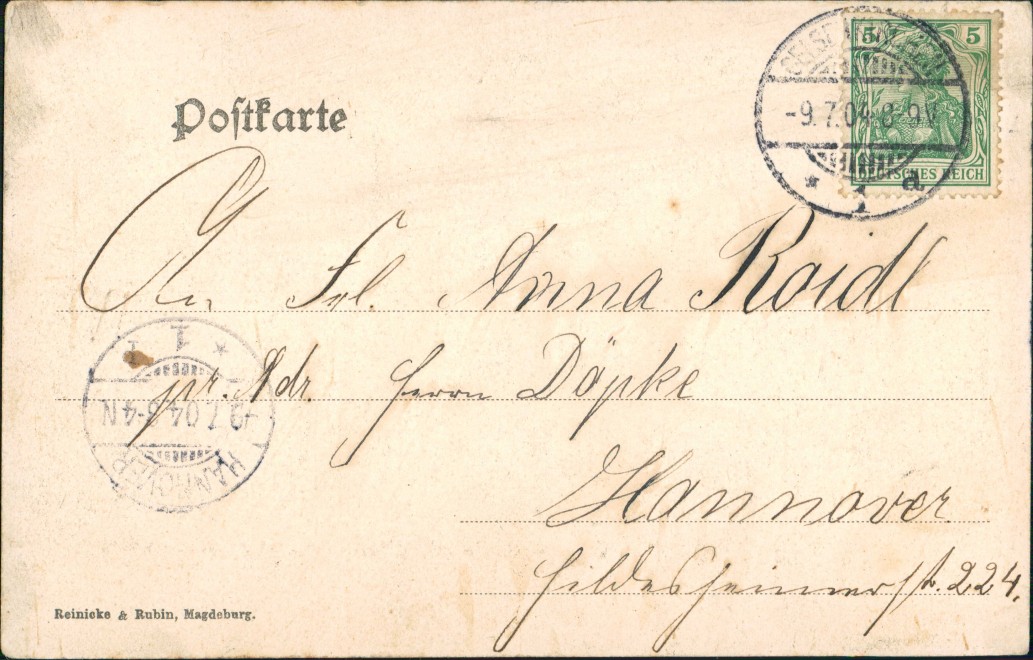 5 5
-9.7.04.8-9V
DEUTSCHES REICH
* 1 a
Postkarte
An Frl. Anna Roidl
1 *
pr. Adr. Herrn Döpke
-9.7.04.3-4N
HANNOVER
Hannover.
Hildesheimerstr. 224.
Reinicke & Rubin, Magdeburg.